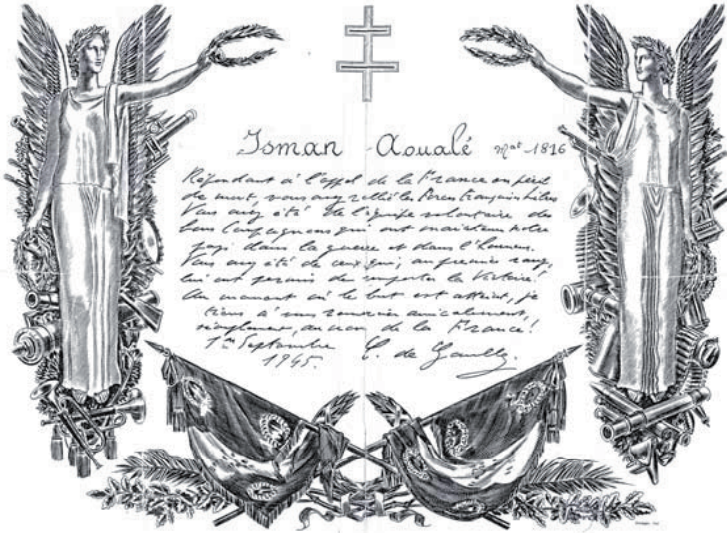 Isman Aoualé Mat 1816
Répondant à l'appel de la France en péril
de mort, vous avez rallié les Forces Françaises Libres
Vous avez été de l'équipe volontaire des
bons compagnons qui ont maintenu notre
pays dans la guerre et dans l'honneur.
Vous avez été de ceux qui, au premier rang,
lui ont permis de remporter la Victoire!
Au moment où le but est atteint, je
tiens à vous remercier amicalement,
simplement, au nom de la France!
1er Septembre
1945. C. de Gaulle.